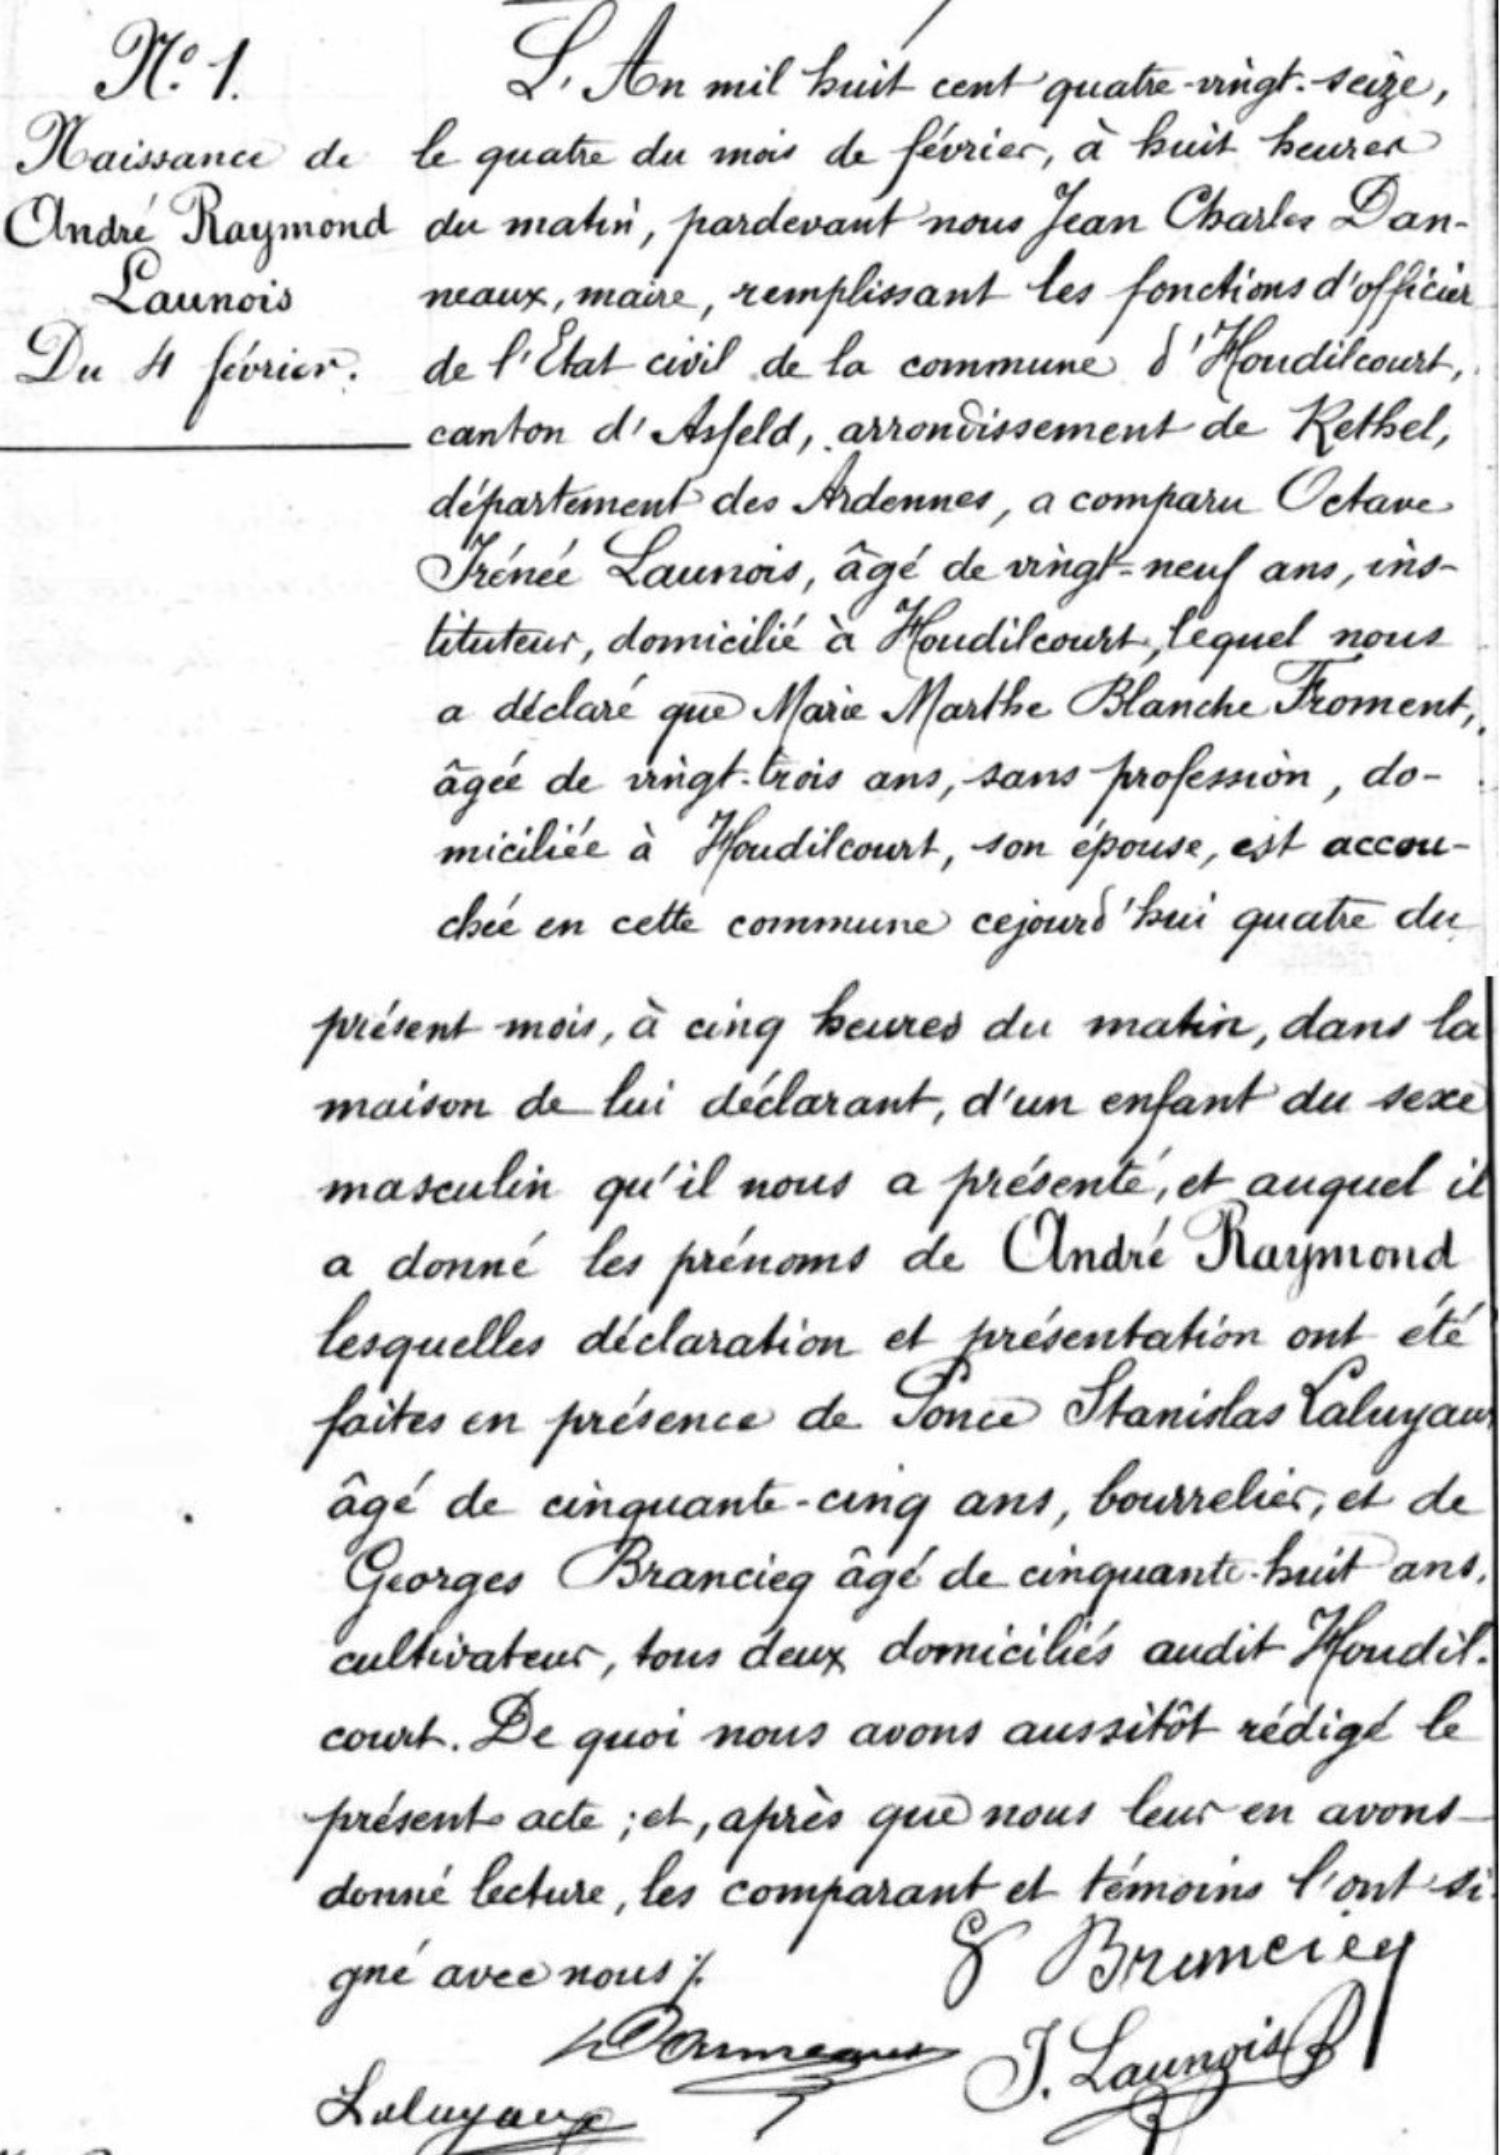 N.° 1.
Naissance de
André Raymond
Launois
Du 4 février.
L'An mil huit cent quatre-vingt-seize,
le quatre du mois de février, à huit heures
du matin, pardevant nous Jean Charles Dan-
neaux, maire, remplissant les fonctions d'officier
de l'Etat civil de la commune d'Houdilcourt,
canton d'Asfeld, arrondissement de Rethel,
département des Ardennes, a comparu Octave
Irénée Launois, âgé de vingt-neuf ans, ins-
tituteur, domicilié à Houdilcourt, lequel nous
a déclaré que Marie Marthe Blanche Froment,
âgée de vingt-trois ans, sans profession, do-
miciliée à Houdilcourt, son épouse, est accou-
chée en cette commune cejourd'hui quatre du
présent mois, à cinq heures du matin, dans la
maison de lui déclarant, d'un enfant du sexe
masculin qu'il nous a présenté, et auquel il
a donné les prénoms de André Raymond
lesquelles déclaration et présentation ont été
faites en présence de Ponce Stanislas Laluyaux
âgé de cinquante-cinq ans, bourrelier, et de
Georges Brancieq âgé de cinquante-huit ans,
cultivateur, tous deux domiciliés audit Houdil-
court. De quoi nous avons aussitôt rédigé le
présent acte ; et, après que nous leur en avons
donné lecture, les comparant et témoins l'ont si
gné avec nous ./.
G Brancieq
Danneaux
J. Launois
Laluyaux